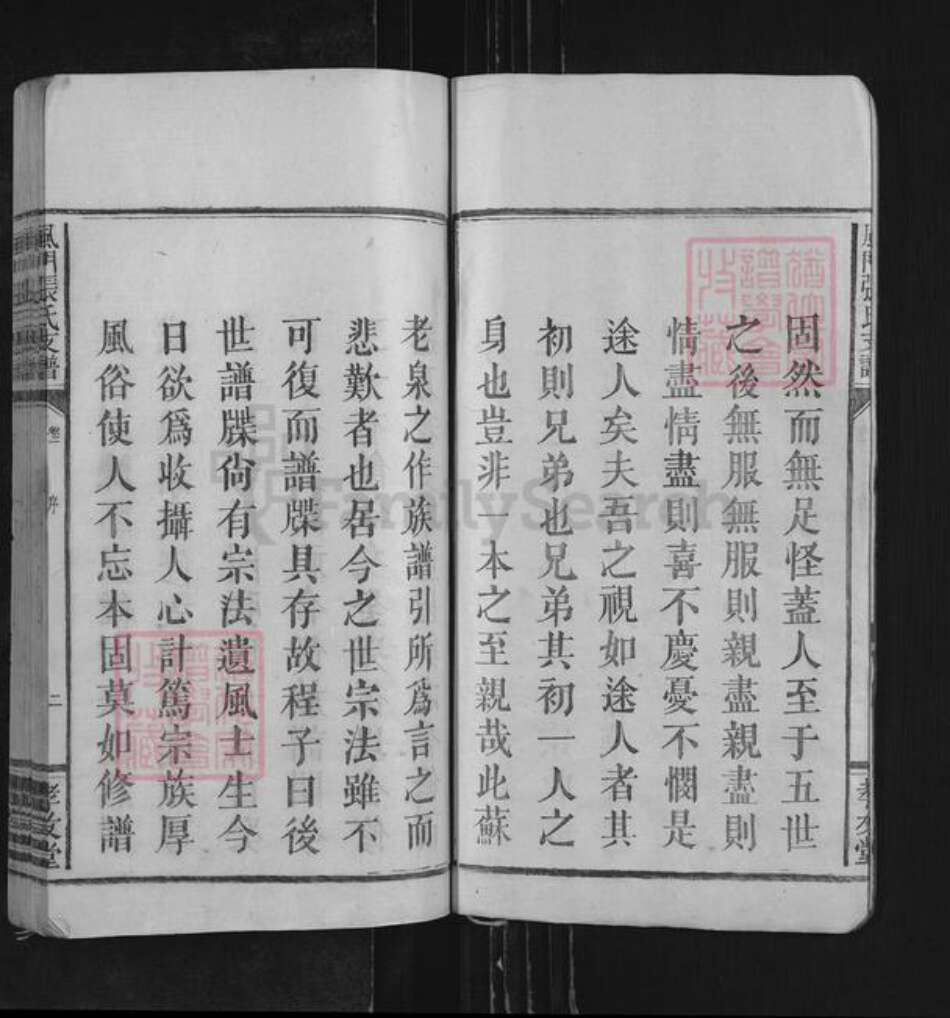 固然而無足怪蓋人至于五世
之後無服無服則親盡親盡則
情盡情盡則喜不慶憂不憫是
途人矣夫吾之視如途人者其
初則兄弟也兄弟其初一人之
身也豈非一本之至親哉此蘇
老泉之作族譜引所爲言之而
悲歎者也居今之世宗法雖不
可復而譜牒具存故程子曰後
世譜牒尙有宗法遺風士生今
日欲爲收攝人心計篤宗族厚
風俗使人不忘本固莫如修譜
鳳門張氏支譜
卷一
序
二
孝友堂
譜學會
收藏
FamilySearch